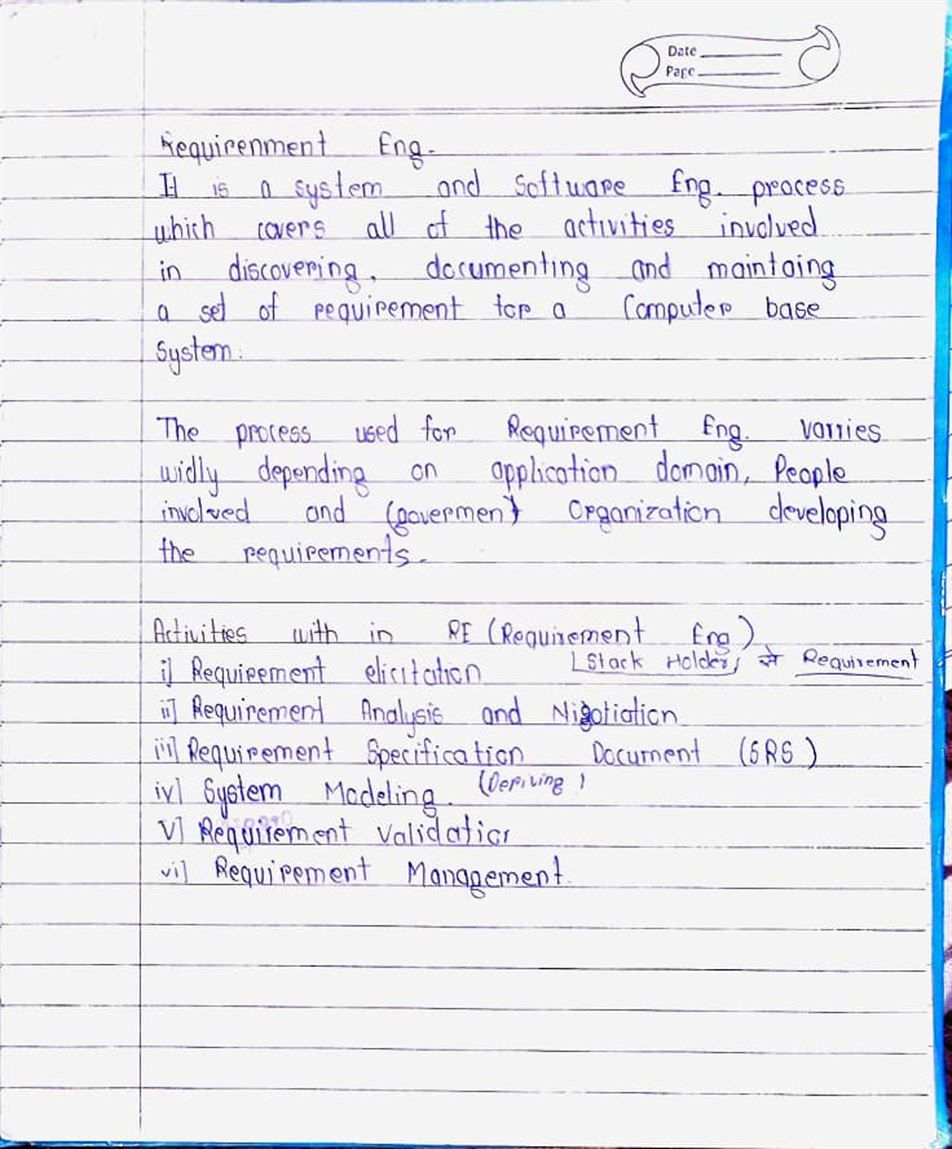 Date
Page
Requirenment Eng.
It is a system and Software Eng. process
which covers all of the activities involved
in discovering, documenting and maintaing
a set of requirement for a Computer base
System.
The process used for Requirement Eng. varries
widly depending on application domain, People
involved and (goverment) Organization developing
the requirements.
Activities with in RE (Requirement Eng)
i) Requirement elicitation [Stack Holder, से Requirement
ii] Requirement Analysis and Nigotiation
iii] Requirement Specification Document (SRS)
iv] System Modeling. (Deriving)
v] Requirement Validation
vi] Requirement Management.